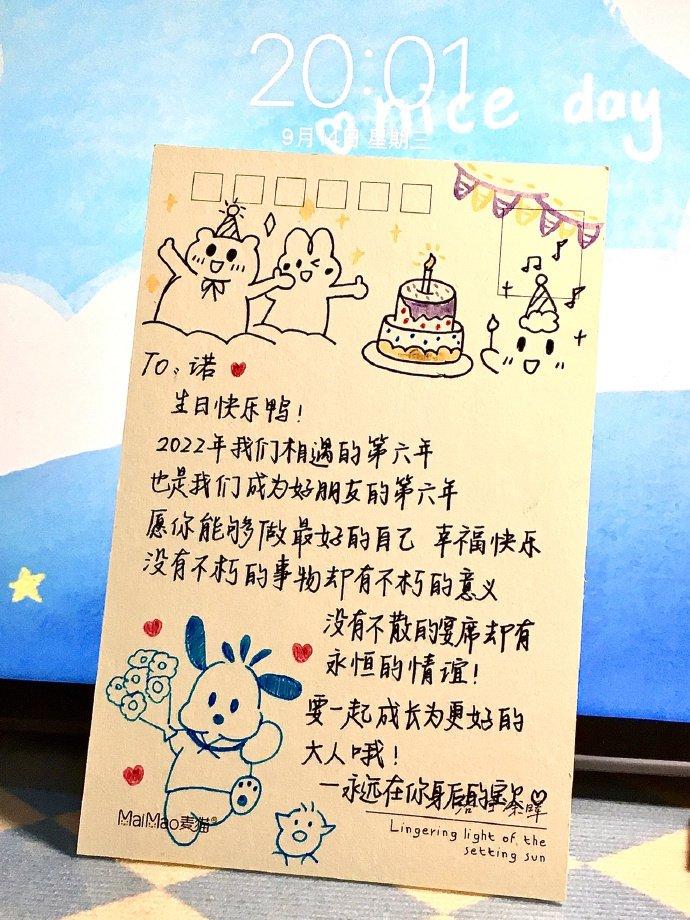 20:01
nice day
9月14日 星期三
TO：诺
生日快乐鸭！
2022年我们相遇的第六年
也是我们成为好朋友的第六年
愿你能够做最好的自己 幸福快乐
没有不朽的事物却有不朽的意义
没有不散的宴席却有
永恒的情谊！
要一起成长为更好的
大人哦！
一永远在你身后的宝
余晖
MaiMao麦猫®
Lingering light of the
setting sun